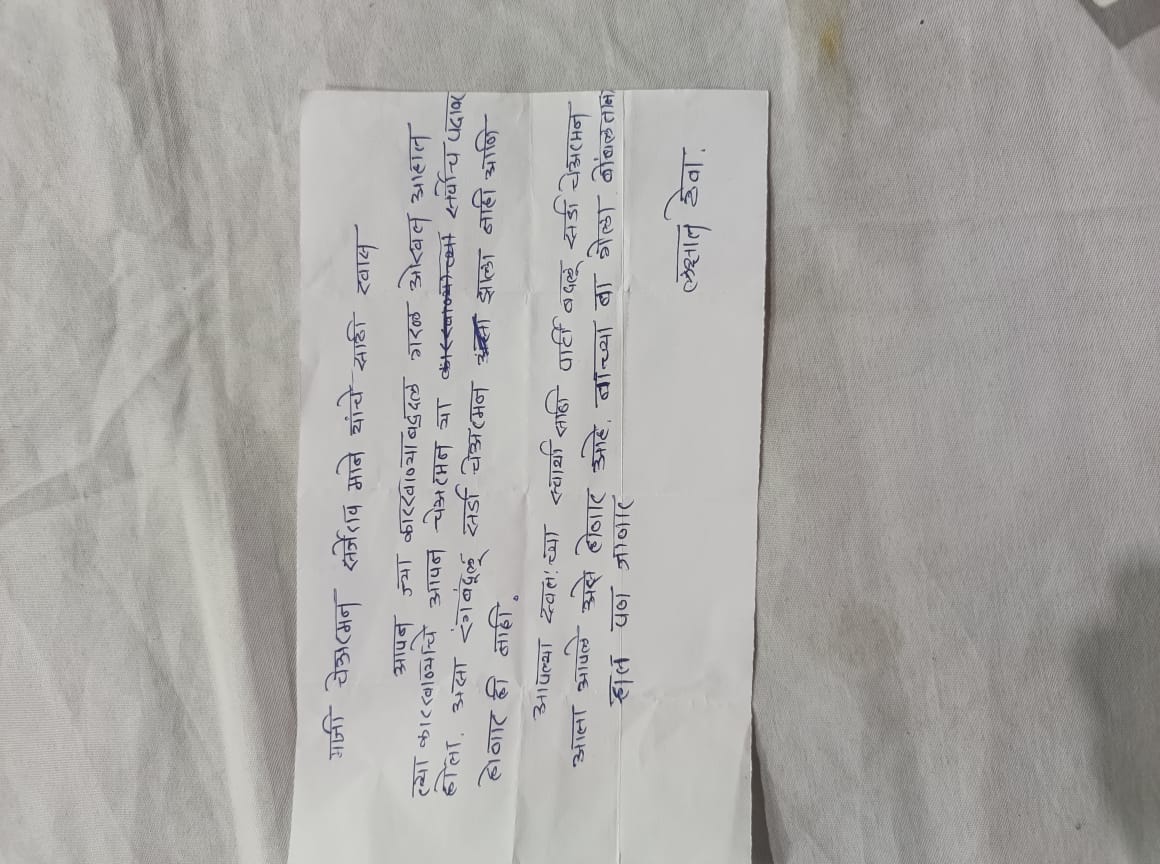 माजी चेअरमन सर्जेराव माने यांचे साठी खास
आपन ज्या कारखाण्याबद्दल गरळ ओखत आहात
त्या कारखाण्याचे आपन चेअरमन या कारखाण्याच्या सर्वोच पदावर
होता. असा रंगबदूलू सर्डा चेअरमन असा झाला नाही आणि
होणार ही नाही.
आपल्या स्वतःच्या स्वार्थासाठी पार्टी बदलू सर्डा चेअरमन
आता आपले असे होणार आहे. नाच्या बा गेला बोंबलत
हात पण जाणार
लक्षात ठेवा.